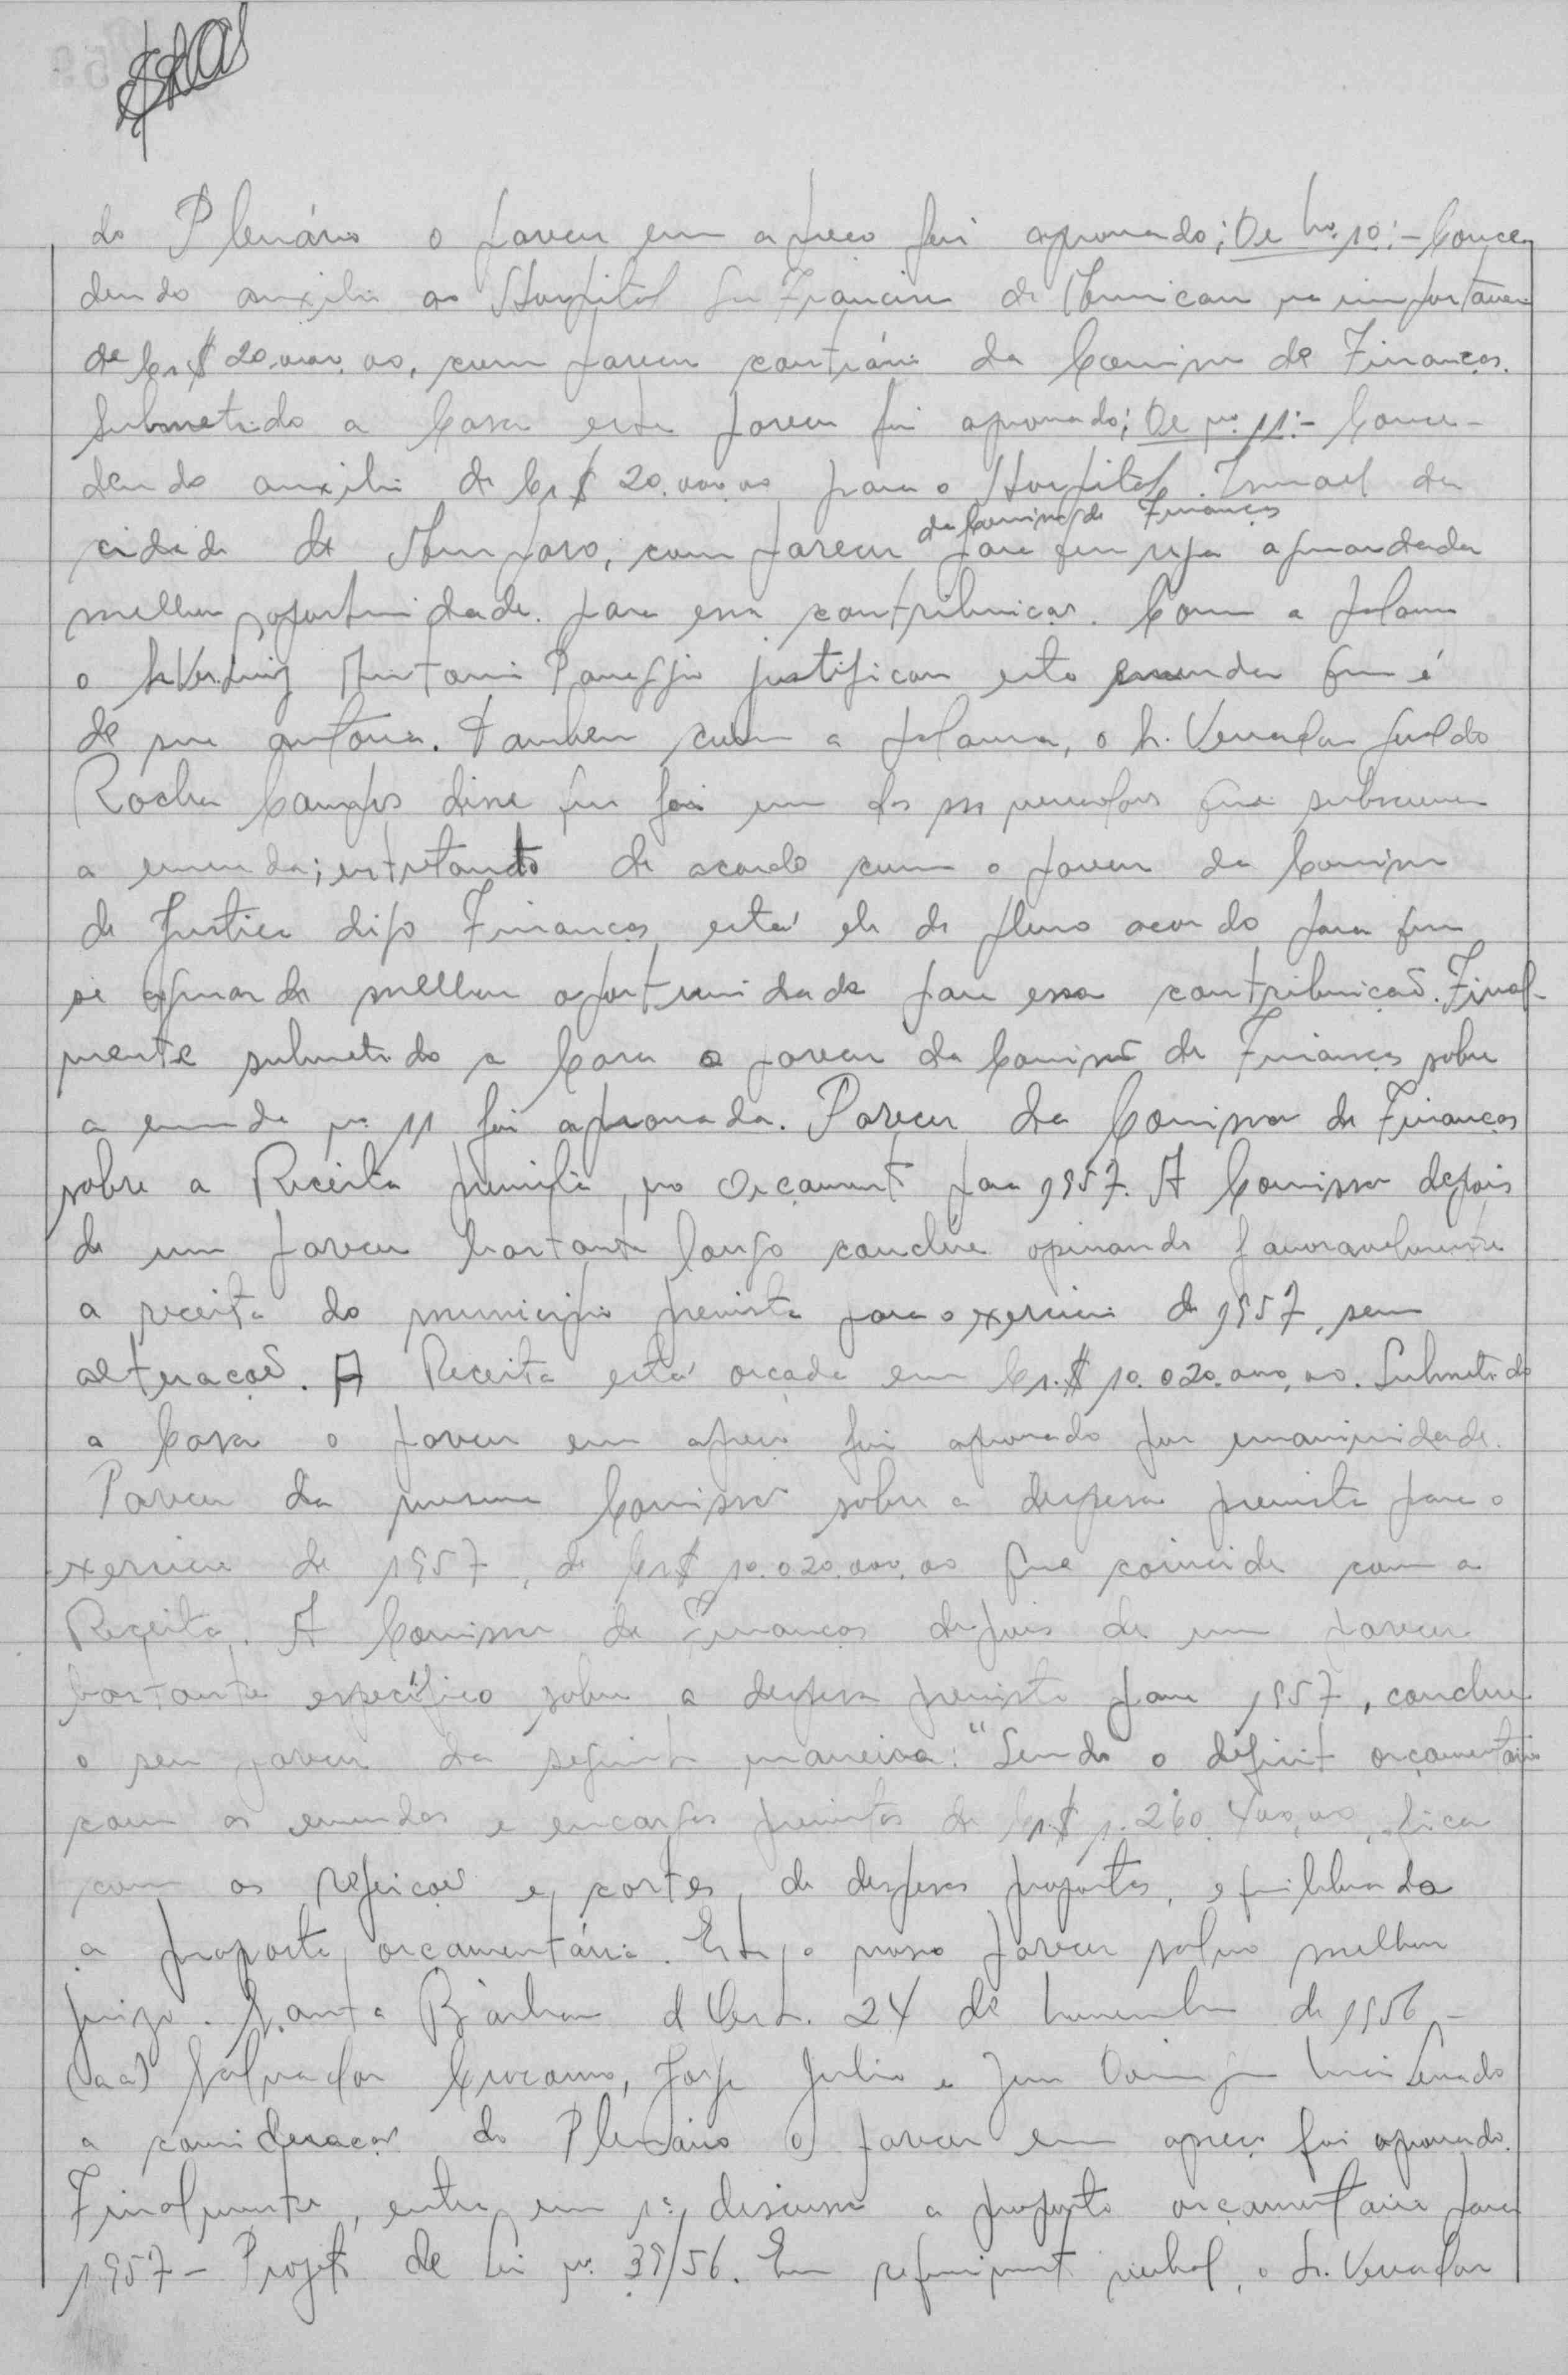 do Plenário o parecer em apreço foi aprovado; De no. 10:- Conce-
dendo auxilio ao Hospital São Francisco de Americana na importancia
de Cr$ 20.000,00, com parecer contrário da Comissão de Finanças.
Submetido a Casa este parecer foi aprovado; De no. 11:- Conce-
dendo auxilio de Cr$ 20.000,00 para o Hospital Ismael da
cidade de Amparo, com parecer da Comissão de Finanças para que seja aguardada
melhor oportunidade para essa contribuição. Com a palavra
o Sr. Ver. Luiz Antonio Panaggio justificou esta emenda que é
de sua autoria. Tambem com a palavra, o Sr. Vereador
Rocha Campos disse que foi um dos srs vereadores que subscreveu
a emenda; entretanto de acordo com o parecer da Comissão
de Justiça digo Finanças está ele de pleno acordo para que
se aguarde melhor oportunidade para essa contribuição. Final-
mente submetido a Casa o parecer da Comissão de Finanças sobre
a emenda no. 11 foi aprovada. Parecer da Comissão de Finanças
sobre a Receita prevista no Orçamento para 1957. A Comissão depois
de um parecer bastante longo conclue opinando favoravelmente
a receita do municipio prevista para o exercicio de 1957, sem
alteração. A Receita está orçada em Cr.$ 10.020.000,00. Submetido
a Casa o parecer em apreço foi aprovado por unanimidade.
Parecer da mesma Comissão sobre a despesa prevista para o
exercicio de 1957, de Cr$ 10.020.000,00 que coincide com a
Receita. A Comissão de Finanças depois de um parecer
bastante especifico sobre a despesa prevista para 1957, conclue
o seu parecer da seguinte maneira: "Sendo o déficit orçamentário
com as emendas e encargos previstos de Cr.$ 1.260.400,00, fica
com as rejeições e cortes de despesas propostas, equilibrada
a proposta orçamentária. Este, o nosso parecer salvo melhor
juizo. Santa Bárbara d'Oeste. 24 de novembro de 1956 -
(aa) Salvador Jorge Julio e Levado
a consideração do Plenário o parecer em apreço foi aprovado.
Finalmente, entra em 1ª discussão a proposta orçamentaria para
1957 - Projeto de Lei no. 39/56. Em requerimento verbal, o Sr. Vereador